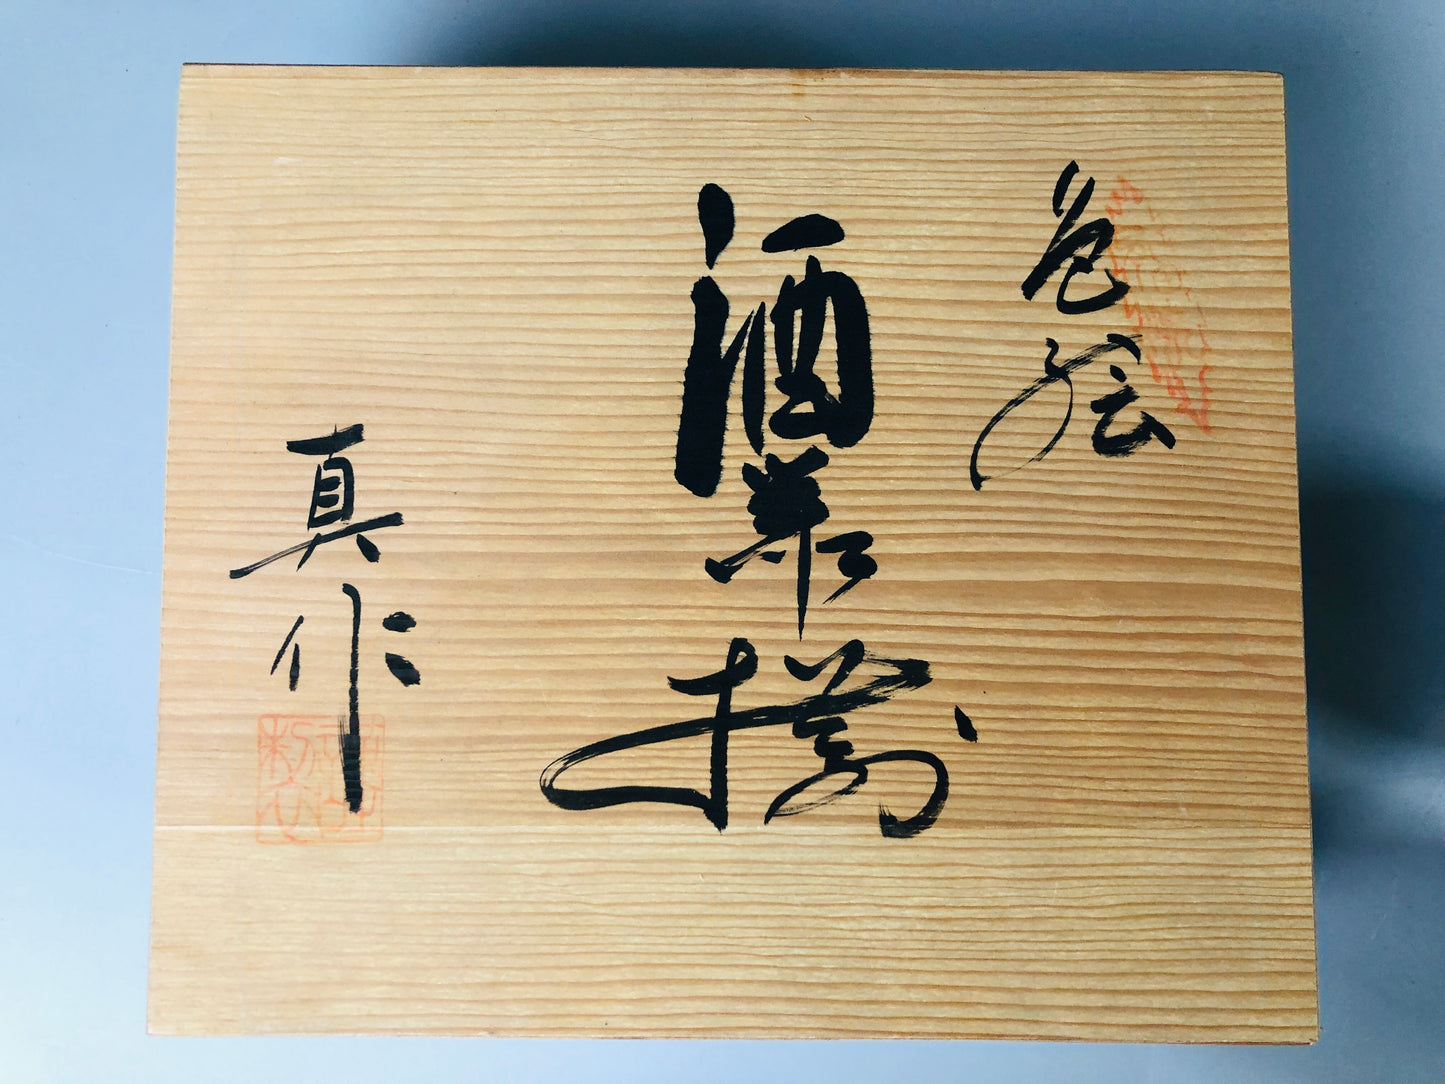 色絵
酒器揃
真作